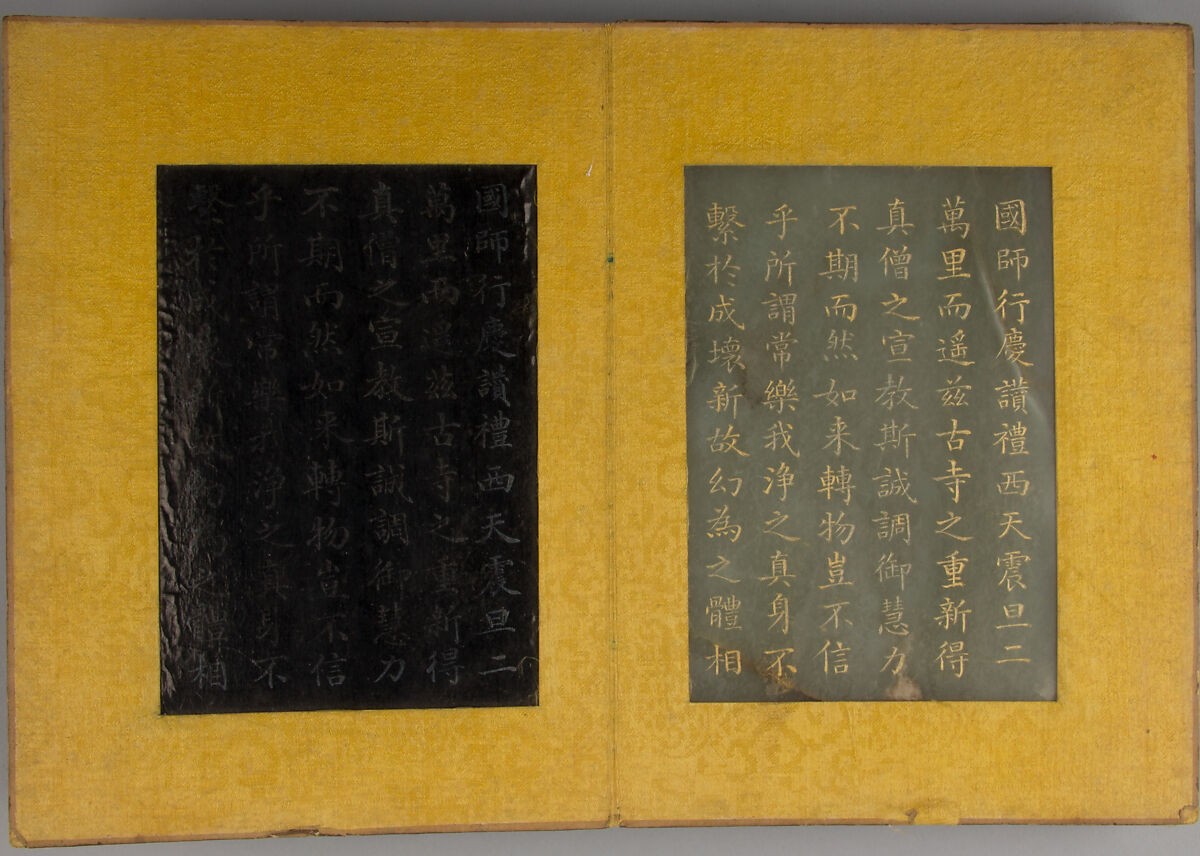 國師行慶讚禮西天震旦二
萬里而遙兹古寺之重新得
真僧之宣教斯誠調御慧力
不期而然如来轉物豈不信
乎所謂常樂我浄之真身不
繫於成壞新故幻為之體相
國師行慶讚禮西天震旦二
萬里而遙兹古寺之重新得
真僧之宣教斯誠調御慧力
不期而然如来轉物豈不信
乎所謂常樂我浄之真身不
繫於成壞新故幻為之體相